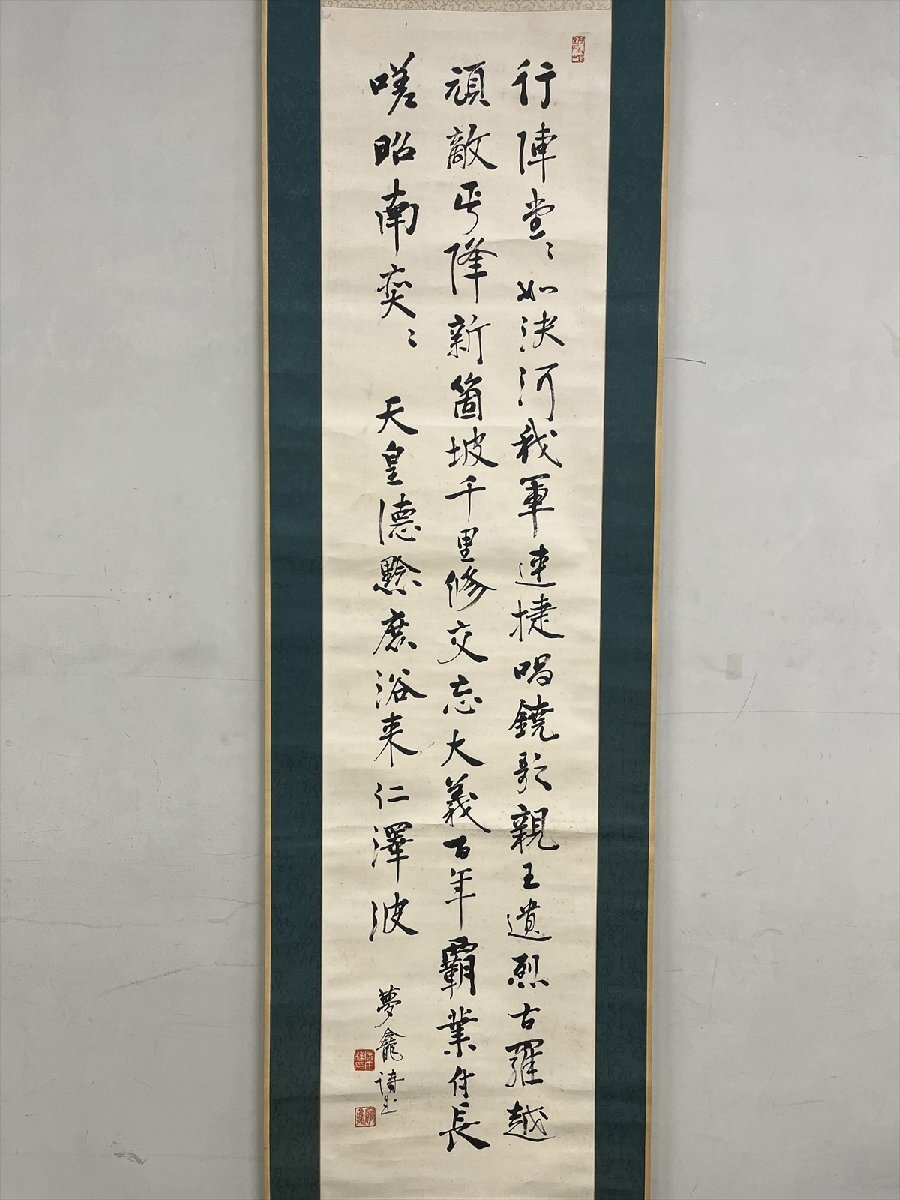 行陣堂〻如決河我軍連捷唱鐃歌親王遺烈古羅越
頑敵丐降新箇坡千里修交忘大義百年霸業付長
嗟昭南奕〻 天皇德黔庶浴来仁澤波
夢龕